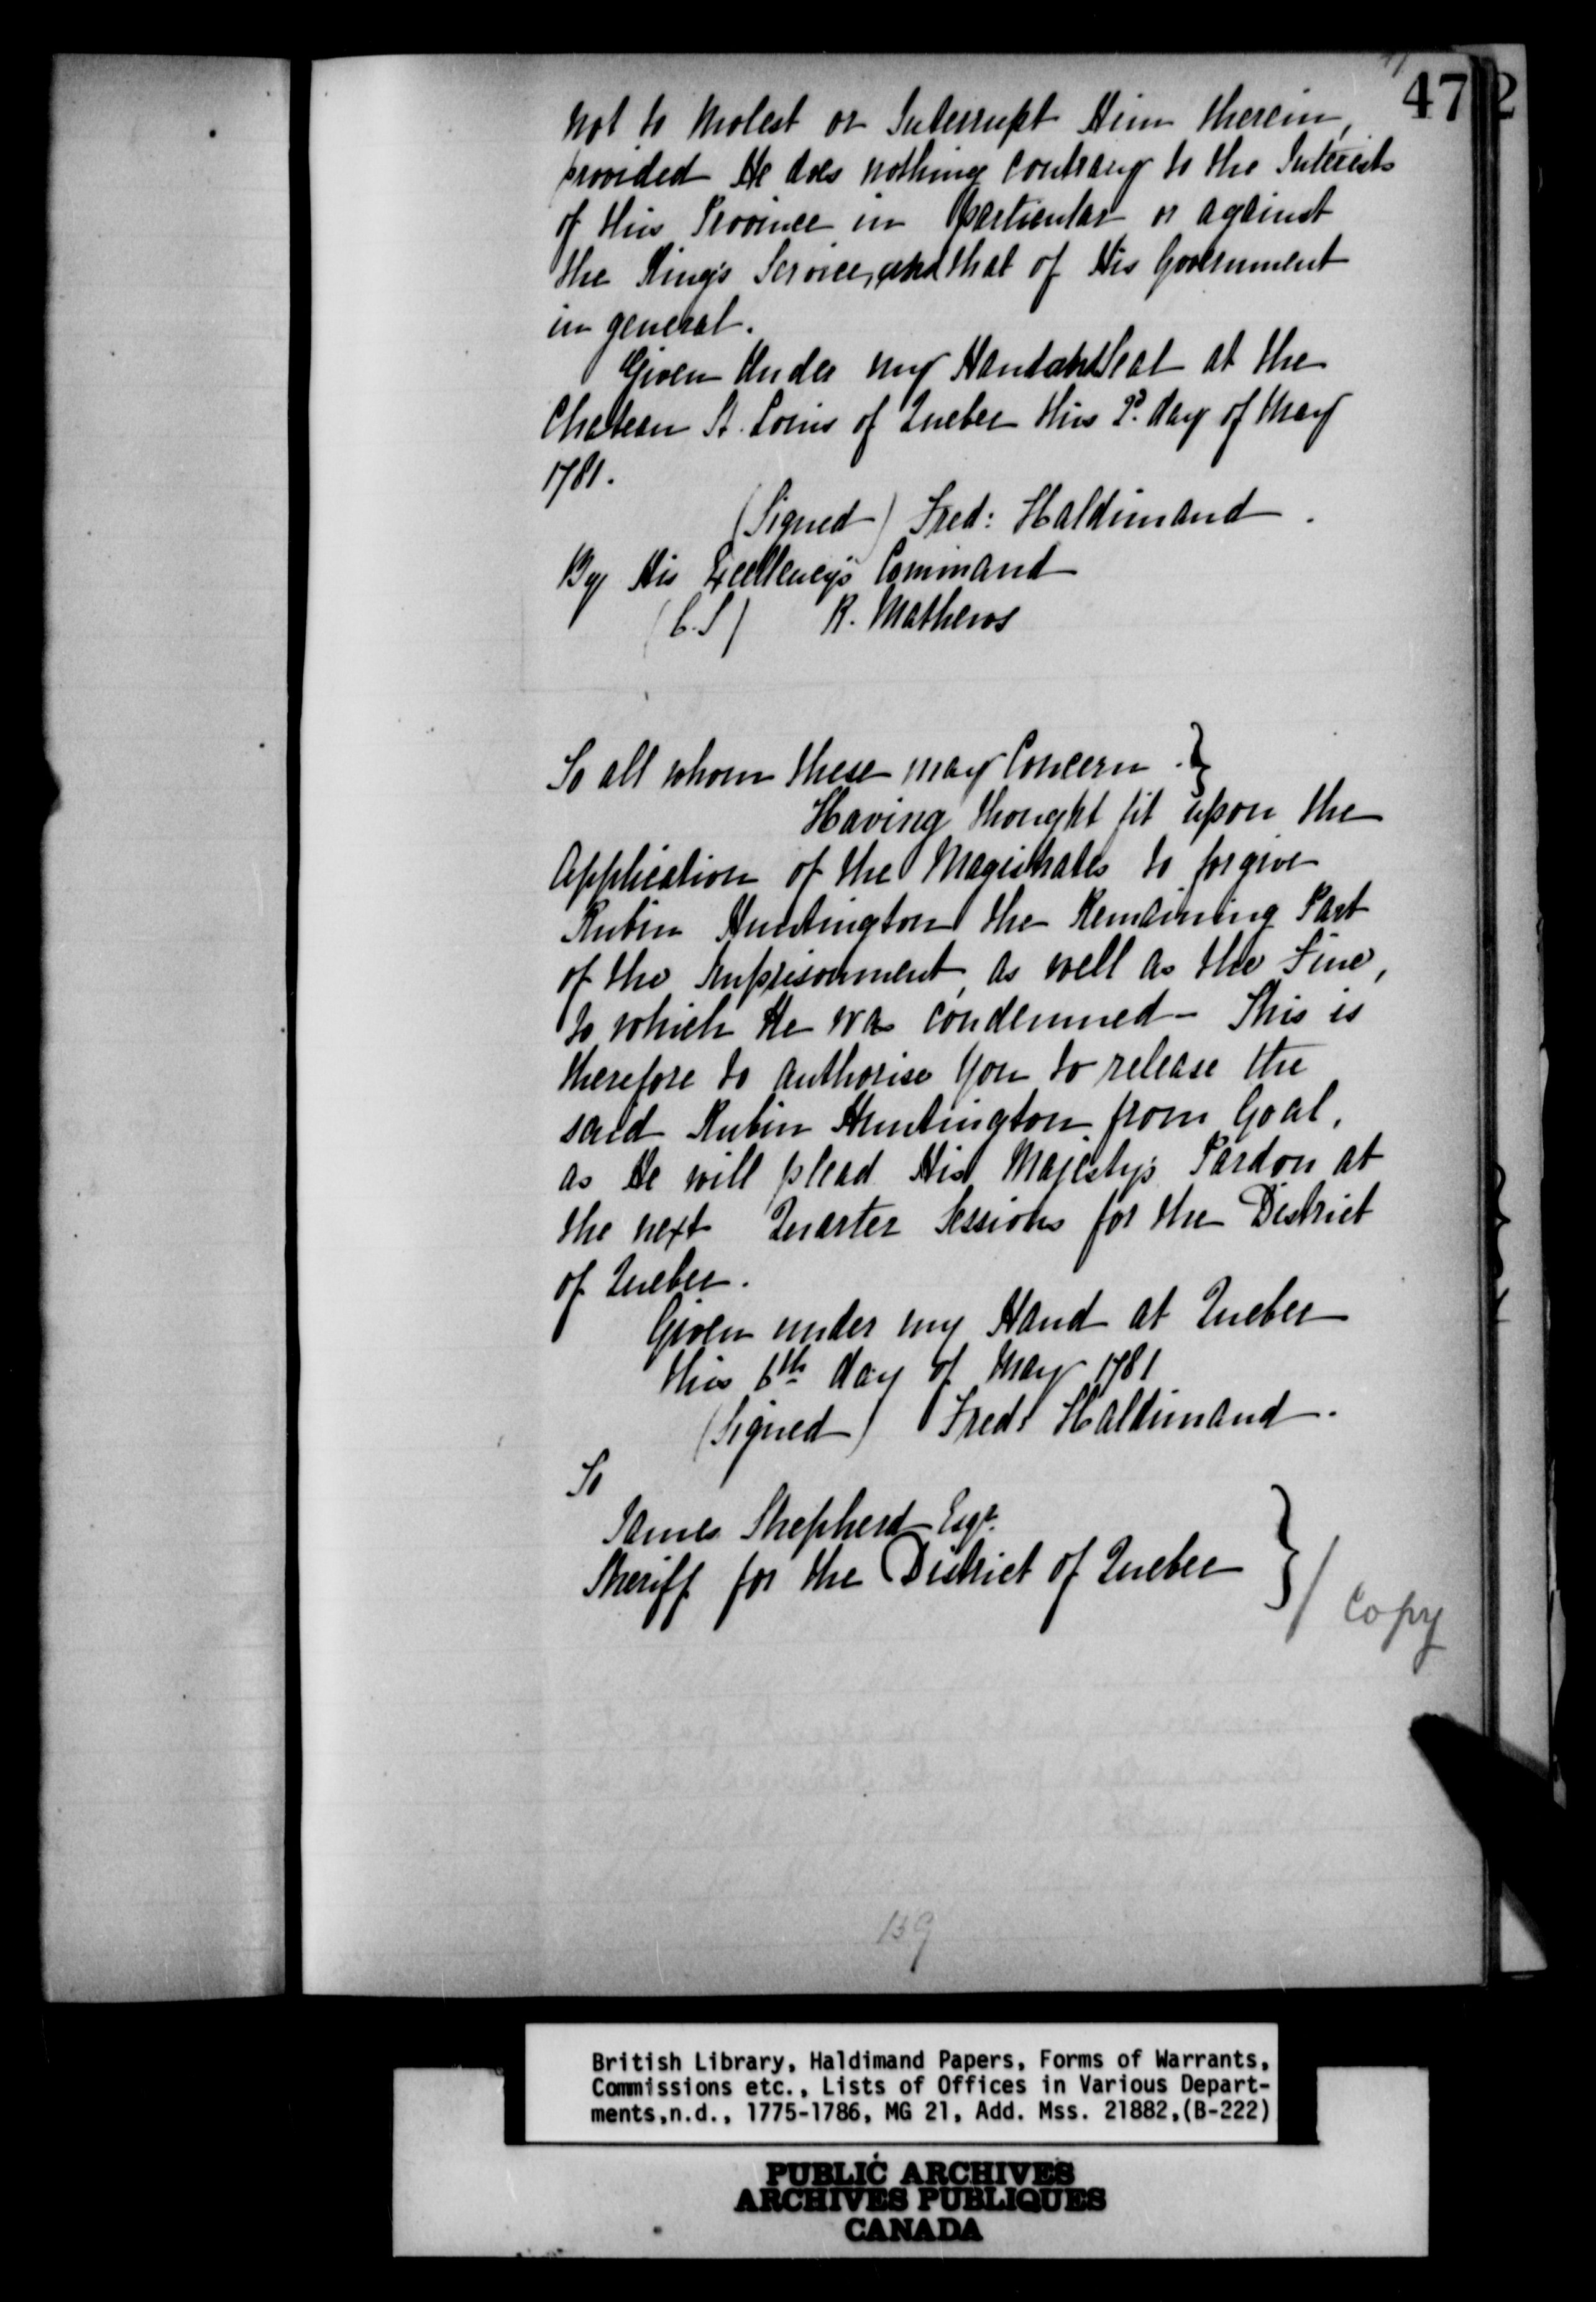 47
not to Molest or Interrupt Him therein,
provided He does nothing contrary to the Interests
of this Province in particular or against
the King's Service, and that of His Government
in general.
Given Under my Hand and Seal at the
Chateau St. Louis of Quebec this 2d. day of May
1781.
(Signed) Fred: Haldimand.
By His Excellency's Command
(L.S) R. Mathews
To all whom these may Concern. }
Having thought fit upon the
Application of the Magistrates to forgive
Rubin Huntington the Remaining Part
of the Imprisonment, as well as the Fine,
to which He was condemned - This is
therefore to authorise You to release the
said Rubin Huntington from Goal,
as He will plead His Majesty's Pardon at
the next Quarter Sessions for the District
of Quebec.
Given under my Hand at Quebec
this 6th day of May 1781
(Signed) Fred: Haldimand.
To
James Shepherd Esqr.
Sheriff for the District of Quebec } / Copy
139
British Library, Haldimand Papers, Forms of Warrants,
Commissions etc., Lists of Offices in Various Depart-
ments,n.d., 1775-1786, MG 21, Add. Mss. 21882,(B-222)
PUBLIC ARCHIVES
ARCHIVES PUBLIQUES
CANADA